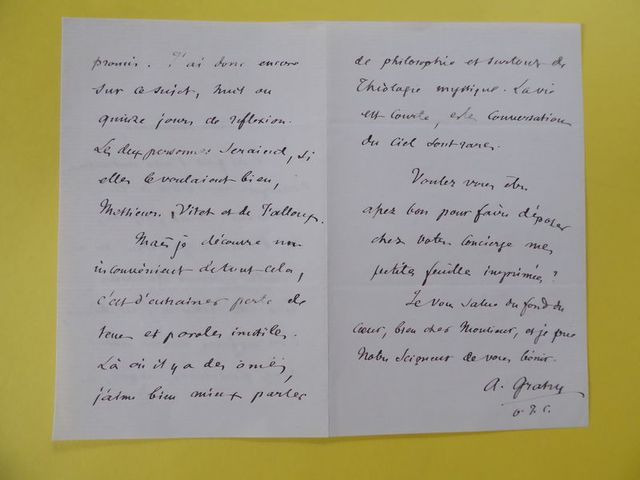 promis. J'ai donc encore
sur ce sujet, huit ou
quinze jours de réflexion.
Les deux personnes seraient, si
elles le voulaient bien,
Messieurs Vitet et de Falloux.
Mais je découvre un
inconvénient de tout cela,
c'est d'entrainer perte de
tems et paroles inutiles.
Là où il y a des amis,
j'aime bien mieux parler
de philosophie et surtout de
Théologie mystique. La vie
est courte, et les conversations
du Ciel sont rares.
Voulez vous être
assez bon pour faire déposer
chez votre Concierge mes
petites feuilles imprimées ?
Je vous salue du fond du
cœur, bien cher Monsieur, et je prie
Notre Seigneur de vous bénir.
A. Gratry